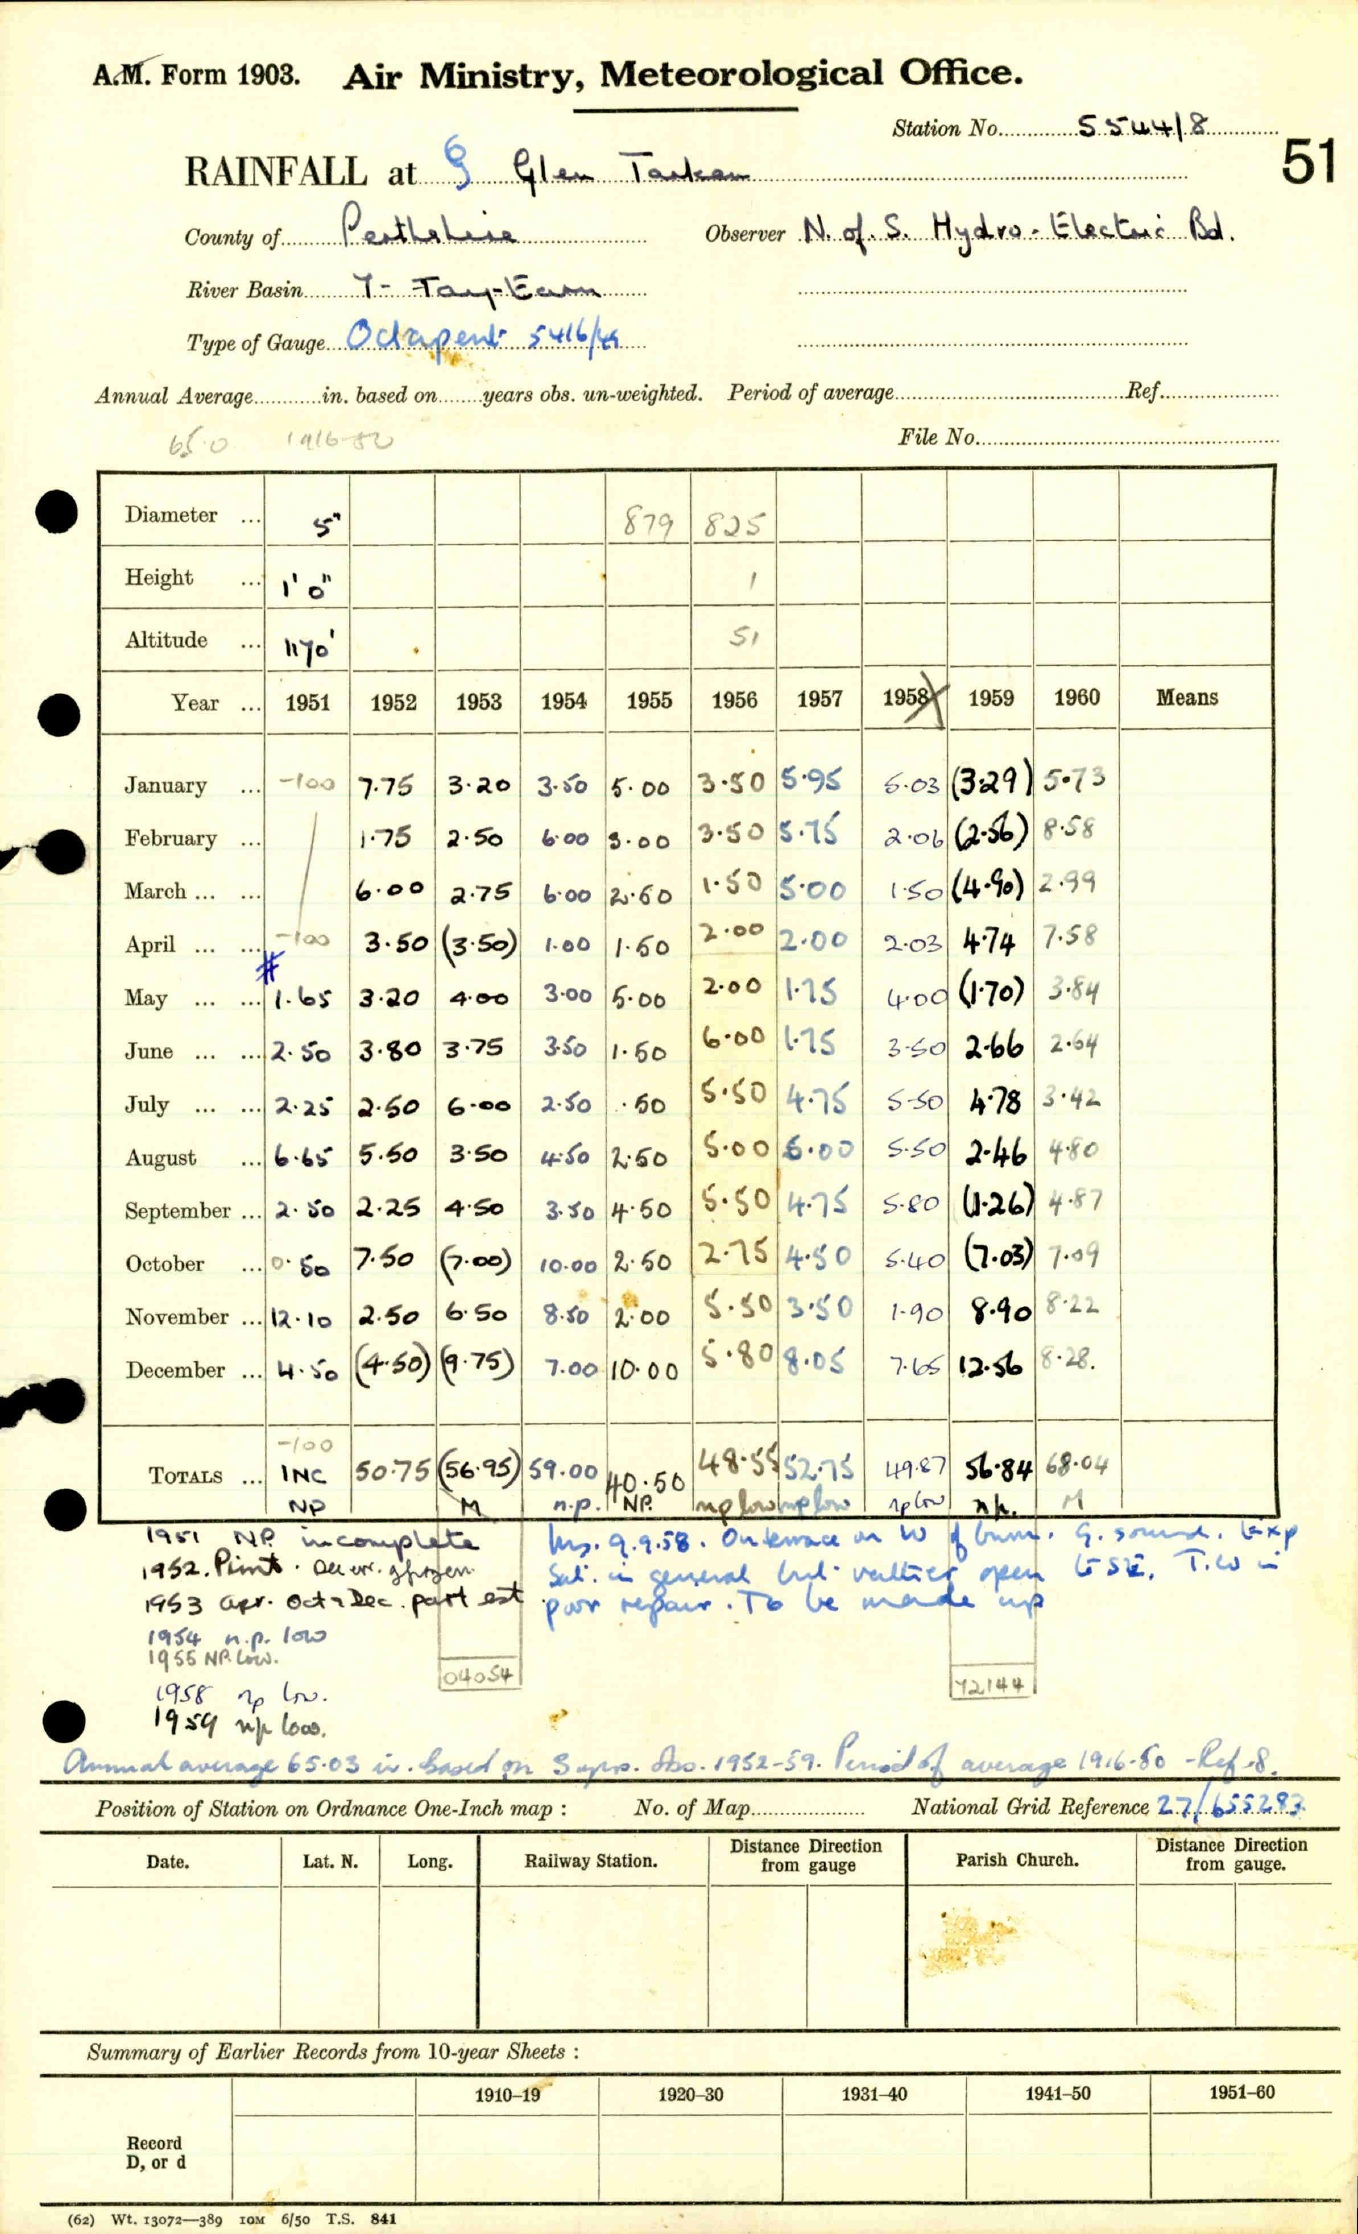 A.M. Form 1903. Air Ministry, Meteorological Office.
Station No. 5544/8
51
RAINFALL at Glen Tarken
County of Perthshire Observer N. of S. Hydro-Electric Bd.
River Basin 7- Tay-Earn
Type of Gauge Octapent 5416/49
Annual Average in. based on years obs. un-weighted. Period of average Ref.
65.0 1916-50 File No.
Diameter ... 5" 879 825
Height ... 1' 0" 1
Altitude ... 1170' 51
Year ... 1951 1952 1953 1954 1955 1956 1957 1958 1959 1960 Means
January ... -100 7.75 3.20 3.50 5.00 3.50 5.95 5.03 (3.29) 5.73
February ... 1.75 2.50 6.00 3.00 3.50 5.75 2.06 (2.56) 8.58
March ... ... 6.00 2.75 6.00 2.50 1.50 5.00 1.50 (4.90) 2.99
April ... ... -100 3.50 (3.50) 1.00 1.50 2.00 2.00 2.03 4.74 7.58
May ... ... # 1.65 3.20 4.00 3.00 5.00 2.00 1.75 4.00 (1.70) 3.84
June ... ... 2.50 3.80 3.75 3.50 1.50 6.00 1.75 3.50 2.66 2.64
July ... ... 2.25 2.50 6.00 2.50 .50 5.50 4.75 5.50 4.78 3.42
August ... 6.65 5.50 3.50 4.50 2.50 5.00 5.00 5.50 2.46 4.80
September ... 2.50 2.25 4.50 3.50 4.50 5.50 4.75 5.80 (1.26) 4.87
October ... 0.50 7.50 (7.00) 10.00 2.50 2.75 4.50 5.40 (7.03) 7.09
November ... 12.10 2.50 6.50 8.50 2.00 5.50 3.50 1.90 8.90 8.22
December ... 4.50 (4.50) (9.75) 7.00 10.00 5.80 8.05 7.65 12.56 8.28.
-100
TOTALS ... INC 50.75 (56.95) 59.00 40.50 48.55 52.75 49.87 56.84 68.04
NP M n.p. NP. np low np low np low np. M
1951 NP. incomplete
1952. Print. Dec frozen
1953 Apr. Oct & Dec. part est
1954 n.p. low
1955 NP. Low.
1958 np low.
1959 np low.
Ins. 9.9.58. On terrace on W of burn. G. sound. Exp
Sat. in general but rather open to SE. T.W in
poor repair. To be made up
04054
72144
Annual average 65.03 in. based on 3 yrs. obs. 1952-59. Period of average 1916-50 - Ref 8.
Position of Station on Ordnance One-Inch map : No. of Map National Grid Reference 27/655283
Date. Lat. N. Long. Railway Station. Distance Direction from gauge Parish Church. Distance Direction from gauge.
Summary of Earlier Records from 10-year Sheets :
1910–19 1920–30 1931–40 1941–50 1951–60
Record
D, or d
(62) Wt. 13072—389 10M 6/50 T.S. 841